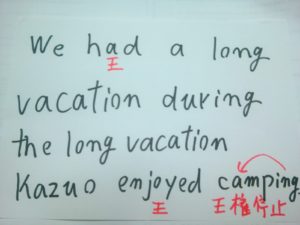 We had a long
王
vacation during
the long vacation
Kazuo enjoyed camping.
王 王権停止